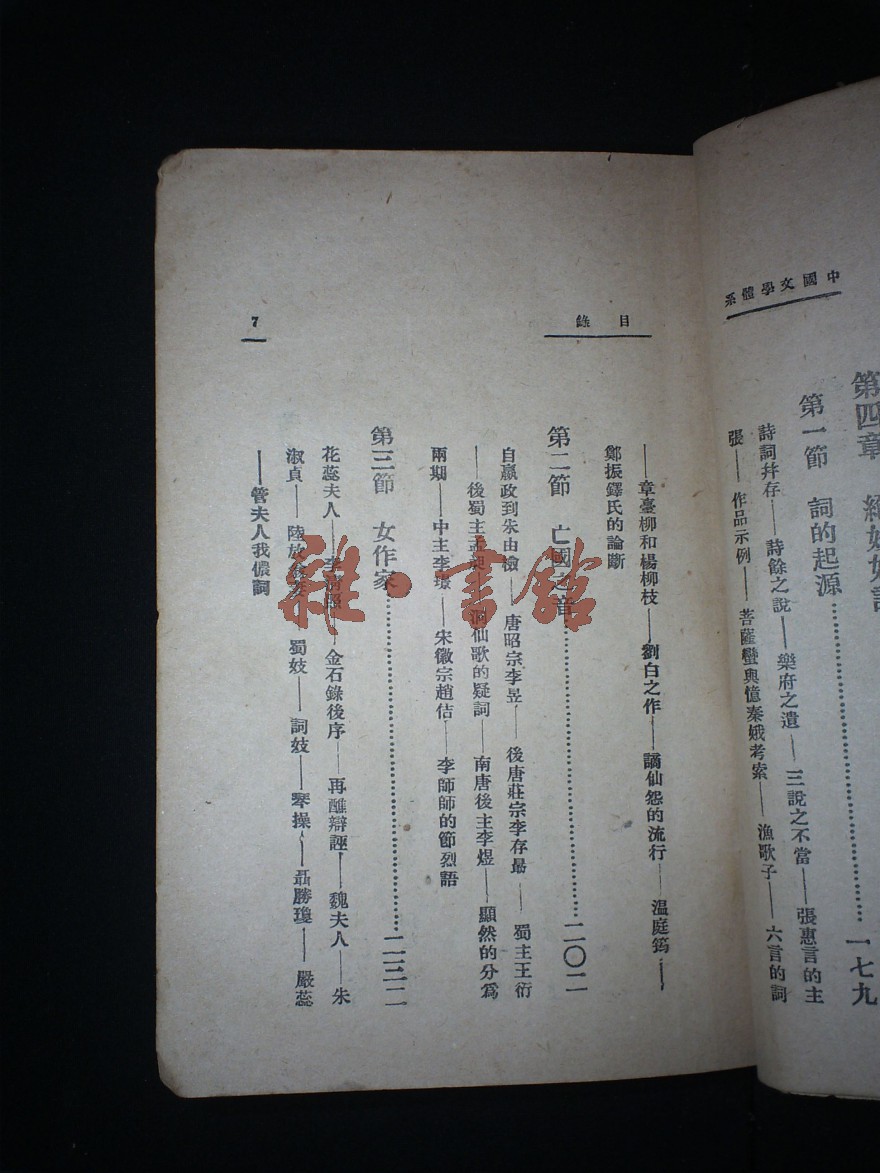 中國文學體系
第四章 絕妙好詞
第一節 詞的起源……一七九
詩詞幷存——詩餘之說——樂府之遺——三說之不當——張惠言的主
張——作品示例——菩薩蠻與憶秦娥考索——漁歌子——六言的詞
目錄
——章臺柳和楊柳枝——劉白之作——謫仙怨的流行——温庭筠——
鄭振鐸氏的論斷
第二節 亡國之音……二〇二
自嬴政到朱由檢——唐昭宗李曅——後唐莊宗李存勗——蜀主王衍
——後蜀主孟昶——洞仙歌的疑詞——南唐後主李煜——顯然的分爲
兩期——中主李璟——宋徽宗趙佶——李師師的節烈語
第三節 女作家……
花蕊夫人——李清照——金石錄後序——再醮辯誣——魏夫人——朱
淑貞——陸放翁妾——蜀妓——詞妓——琴操——聶勝瓊——嚴蕊
——管夫人我儂詞
7
雜·書館